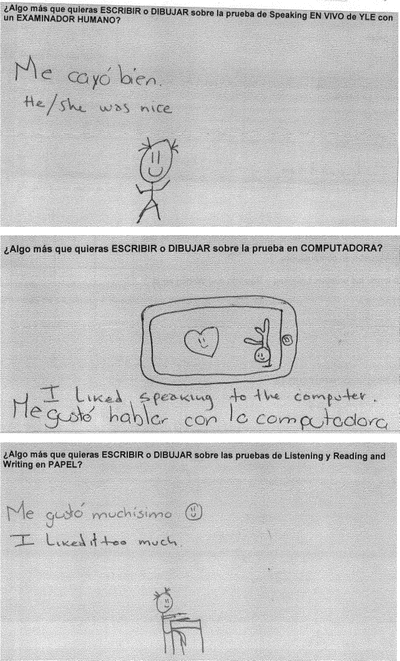 ¿Algo más que quieras ESCRIBIR o DIBUJAR sobre la prueba de Speaking EN VIVO de YLE con
un EXAMINADOR HUMANO?
Me cayó bien.
He/She was nice
¿Algo más que quieras ESCRIBIR o DIBUJAR sobre la prueba en COMPUTADORA?
I liked speaking to the computer.
Me gustó hablar con la computadora
¿Algo más que quieras ESCRIBIR o DIBUJAR sobre las pruebas de Listening y Reading and
Writing en PAPEL?
Me gustó muchísimo
I Liked it too much.